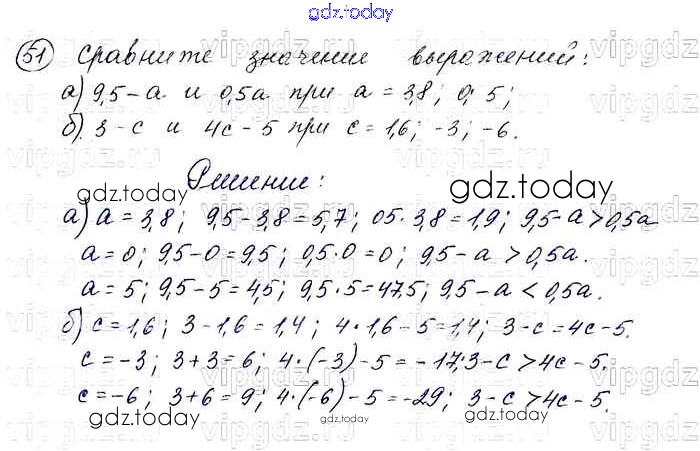 gdz.today
51 Сравните значение выражений:
а) 9,5-а и 0,5а при а = 3,8; 0; 5;
б) 3-с и 4с-5 при с = 1,6; -3; -6.
Решение:
gdz.today gdz.today
а) а = 3,8; 9,5-3,8=5,7; 05·3,8=1,9; 9,5-а>0,5а
а=0; 9,5-0=9,5; 0,5·0=0; 9,5-а>0,5а.
а=5; 9,5-5=4,5; 9,5·5=47,5; 9,5-а<0,5а.
б) с=1,6; 3-1,6=1,4; 4·1,6-5=1,4; 3-с=4с-5.
с=-3; 3+3=6; 4·(-3)-5=-17; 3-с>4с-5.
с=-6; 3+6=9; 4·(-6)-5=-29; 3-с>4с-5.
gdz.today gdz.today gdz.today